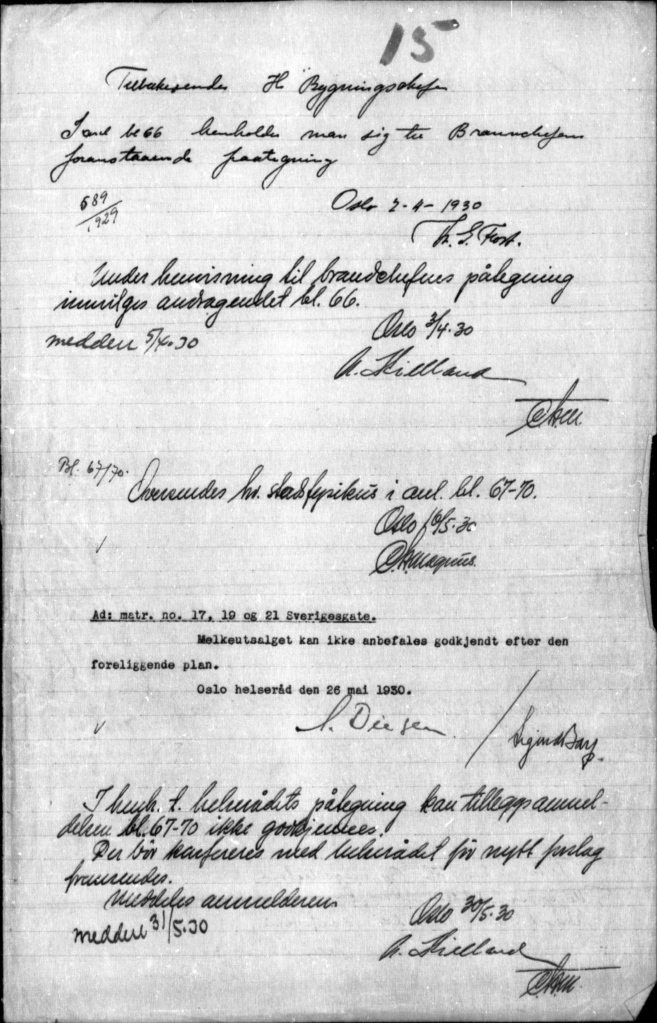 15
Tilbakesendes H Bygningschefen
I anl bl 66 henholder man sig til Brannchefens
foranstaaende paategning
689/1929
Oslo 2-4-1930
Under henvisning til brandchefens påtegning
innvilges andragendet bl. 66.
Oslo 3/4.30
meddelt 5/4.30
A. Kielland
Bl. 67/70.
Oversendes hr. stadsfysikus i anl. bl. 67-70.
Oslo 16/5.30
Magnus
Ad: matr. no. 17, 19 og 21 Sverigesgate.
Melkeutsalget kan ikke anbefales godkjendt efter den
foreliggende plan.
Oslo helseråd den 26 mai 1930.
I henh. t. helserådets påtegning kan tilleggsanmel-
delsen bl. 67-70 ikke godkjennes.
Der bör konfereres med helserådet för nytt forslag
fremsendes.
Meddeles anmelderen
Oslo 30/5.30
meddelt 31/5.30
A. Kielland